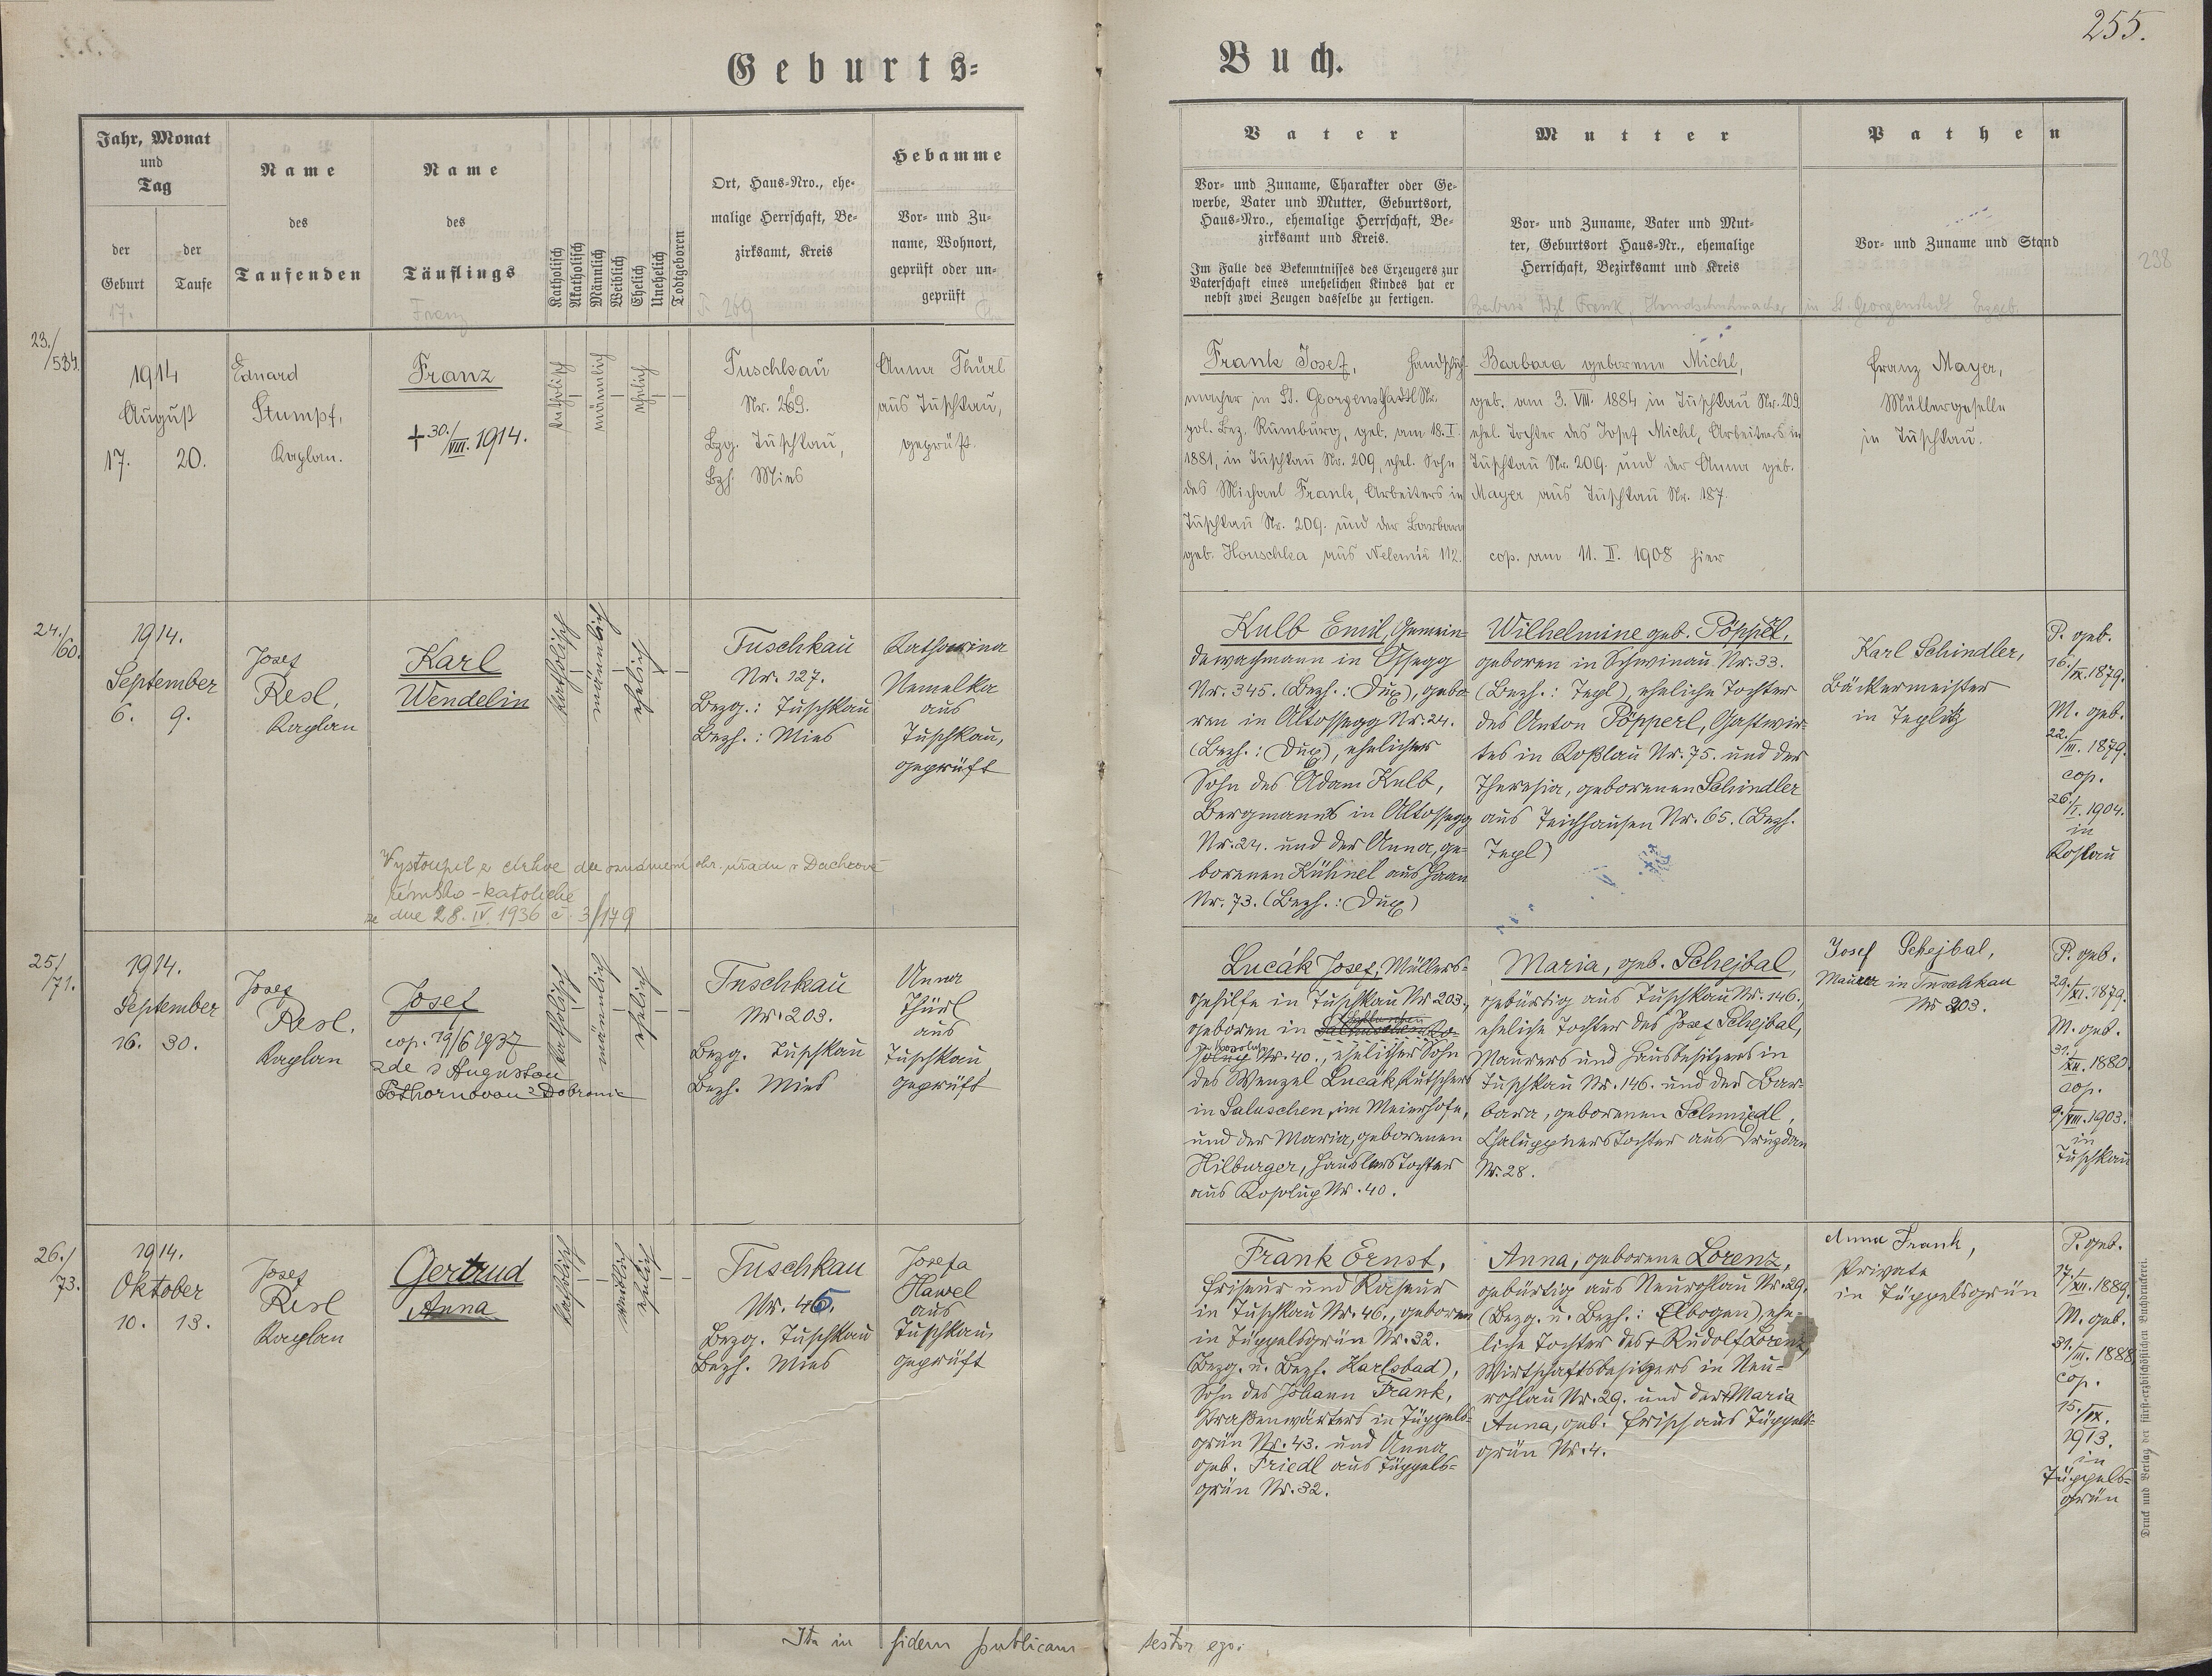 255.
Geburts-
Buch.
Jahr, Monat
und
Tag
der
Geburt
der
Taufe
Name
des
Taufenden
Name
des
Täuflings
Katholisch
Akatholisch
Männlich
Weiblich
Ehelich
Unehelich
Todtgeboren
Ort, Haus-Nro., ehe-
malige Herrschaft, Be-
zirksamt, Kreis
Hebamme
Vor- und Zu-
name, Wohnort,
geprüft oder un-
geprüft
Vater
Vor- und Zuname, Charakter oder Ge-
werbe, Vater und Mutter, Geburtsort,
Haus-Nro., ehemalige Herrschaft, Be-
zirksamt und Kreis.
Im Falle des Bekenntnisses des Erzeugers zur
Vaterschaft eines unehelichen Kindes hat er
nebst zwei Zeugen dasselbe zu fertigen.
Mutter
Vor- und Zuname, Vater und Mut-
ter, Geburtsort Haus-Nr., ehemalige
Herrschaft, Bezirksamt und Kreis
Pathen
Vor- und Zuname und Stand
238
17.
Franz
269
23./
534.
1914
August
17. 20.
Eduard
Stumpf,
Kaplan.
Franz
+ 30./VIII. 1914.
katholisch
männlich
ehelich
Tuschkau
Nr. 269.
Bzg. Tuschkau,
Bzh. Mies
Anna Thürl
aus Tuschkau,
geprüft.
Frank Josef, Handschuh-
macher in St. Georgenthal Nr.
pol. Bez. Rumburg, geb. am 18. I.
1881, in Tuschkau Nr. 209, ehel. Sohn
des Michael Frank, Arbeiters in
Tuschkau Nr. 209. und der Barbara
geb. Houschka aus 112.
Barbara geborene Michl,
geb. am 3. VIII. 1884 in Tuschkau Nr. 209.
ehel. Tochter des Josef Michl, Arbeiters in
Tuschkau Nr. 209. und der Anna geb.
Mayer aus Tuschkau Nr. 187.
cop. am 11. II. 1908 hier
Franz Mayer,
Müllergeselle
in Tuschkau.
24./
60.
1914.
September
6. 9.
Josef
Resl,
Kaplan
Karl
Wendelin
katholisch
männlich
ehelich
Tuschkau
Nr. 127.
Bezg.: Tuschkau
Bezh.: Mies
Katharina
Nemelka
aus
Tuschkau,
geprüft
Vystoupil z církve dle oznámení okr. úřadu v
římsko-katolické
ze dne 28. IV. 1936 č. 3/179
Kulb Emil, Gemein-
dewachmann in Ossegg
Nr. 345. (Bezh.: Dux), gebo
ren in Altossegg Nr. 24.
(Bezh.: Dux), ehelicher
Sohn des Adam Kulb,
Bergmanns in Altossegg
Nr. 24. und der Anna, ge-
borenen Kühnel aus Haan
Nr. 73. (Bezh.: Dux)
Wilhelmine geb. Pöpperl,
geboren in Schwinau Nr. 33.
(Bezh.: Tepl), eheliche Tochter
des Anton Pöpperl, Gastwir-
tes in Roßlau Nr. 75. und der
Theresia, geborenen Schindler
aus Teichhausen Nr. 65. (Bezh.
Tepl)
Karl Schindler,
Bäckermeister
in Teplitz
P. geb.
16./IX. 1879.
M. geb.
22./III. 1879.
cop.
26./I. 1904.
in
Roßlau
25./
71.
1914.
September
16. 30.
Josef
Resl.
Kaplan
Josef
cop. 19/6 1937
zde s Augustou
Pöthornovou z Dobronic
katholisch
männlich
ehelich
Tuschkau
Nr. 203.
Bezg. Tuschkau
Bezh. Mies
Anna
Thürl
aus
Tuschkau
geprüft
Lucák Josef, Müllers-
gehilfe in Tuschkau Nr. 203.,
geboren in
Nr. 40., ehelicher Sohn
des Wenzel Lucak, Kutschers
in Saluschen, im Meierhofe,
und der Maria, geborenen
Hilburger, Häuslerstochter
aus Kosolup Nr. 40.
Maria, geb. Schejbal,
gebürtig aus Tuschkau Nr. 146.,
eheliche Tochter des Josef Schejbal,
Maurers und Hausbesitzers in
Tuschkau Nr. 146. und der Bar-
bara, geborenen Schmiedl,
Chaluppnerstochter aus
Nr. 28.
Josef Schejbal,
Maurer in Tuschkau
Nr 203.
P. geb.
29./XI. 1879.
M. geb.
31./XII. 1880.
cop.
9./VIII. 1903.
in
Tuschkau
26./
73.
1914.
Oktober
10. 13.
Josef
Resl
Kaplan
Gertrud
Anna
katholisch
weiblich
ehelich
Tuschkau
Nr. 46.
Bezg. Tuschkau
Bezh. Mies
Josefa
Hawel
aus
Tuschkau,
geprüft
Frank Ernst,
Friseur und Raseur
in Tuschkau Nr. 46., geboren
in Tüppelsgrün Nr. 32.
(Bezg. u. Bezh. Karlsbad),
Sohn des Johann Frank,
Straßenwärters in Tüppels-
grün Nr. 43. und Anna
geb. Friedl aus Tüppels-
grün Nr. 32.
Anna, geborene Lorenz,
gebürtig aus Neurohlau Nr. 29.
(Bezg. u. Bezh.: Elbogen), ehe-
liche Tochter des + Rudolf Lorenz,
Wirtschaftsbesitzers in Neu-
rohlau Nr. 29. und der + Maria
Anna, geb. Frisch aus Tüppels-
grün Nr. 4.
Anna Frank,
Private
in Tüppelsgrün
P. geb.
17./XII. 1889.
M. geb.
31./III. 1888.
cop.
15./IX.
1913.
in
Tüppels-
grün
Ita in fidem publicam testor ego:
Druck und Verlag der fürst-erzbischöflichen Buchdruckerei.